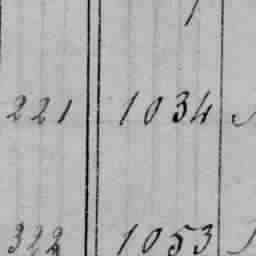 221 1034
322 1053